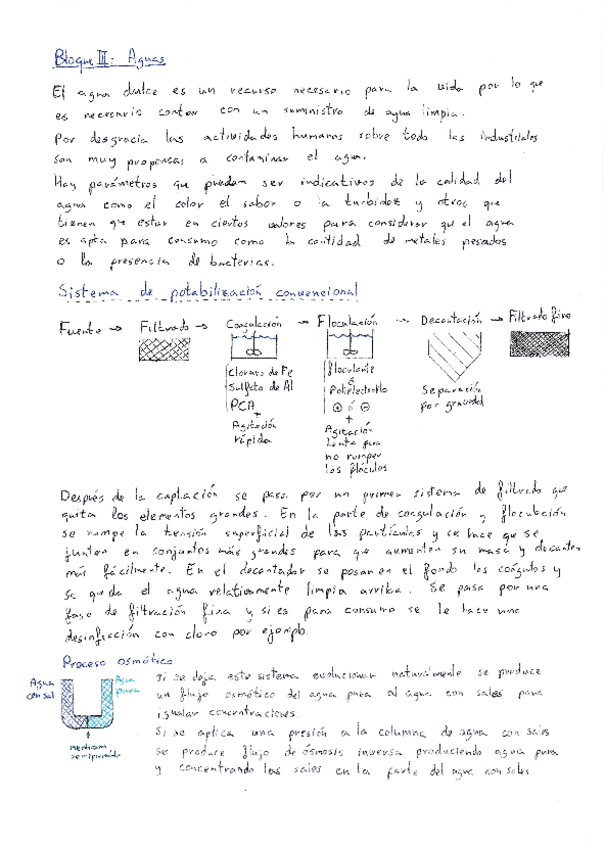 Bloque III: Aguas
El agua dulce es un recurso necesario para la vida por lo que
es necesario contar con un suministro de agua limpia.
Por desgracia las actividades humanas sobre todo las industriales
son muy propensas a contaminar el agua.
Hay parámetros que pueden ser indicativos de la calidad del
agua como el color el sabor o la turbidez y otros que
tienen que estar en ciertos valores para considerar que el agua
es apta para consumo como la cantidad de metales pesados
o la presencia de bacterias.
Sistema de potabilización convencional
Fuente → Filtrado → Coagulación → Floculación → Decantación → Filtrado fino
Cloruro de Fe
Sulfato de Al
PCA
+
Agitación
rápida
floculante
Polielectrolito
⊕ ó ⊖
+
Agitación
lenta para
no romper
los flóculos
Separación
por gravedad
Después de la captación se pasa por un primer sistema de filtrado que
quita los elementos grandes. En la parte de coagulación y floculación
se rompe la tensión superficial de las partículas y se hace que se
junten en conjuntos más grandes para que aumenten su masa y decanten
más fácilmente. En el decantador se posan en el fondo los coágulos y
se queda el agua relativamente limpia arriba. Se pasa por una
fase de filtración fina y si es para consumo se le hace una
desinfección con cloro por ejemplo.
Proceso osmótico
Agua
con sal
Agua
pura
membrana
semipermeable
Si se deja este sistema evolucionar naturalmente se produce
un flujo osmótico del agua pura al agua con sales para
igualar concentraciones.
Si se aplica una presión a la columna de agua con sales
se produce flujo de ósmosis inversa produciendo agua pura
y concentrando las sales en la parte del agua con sales